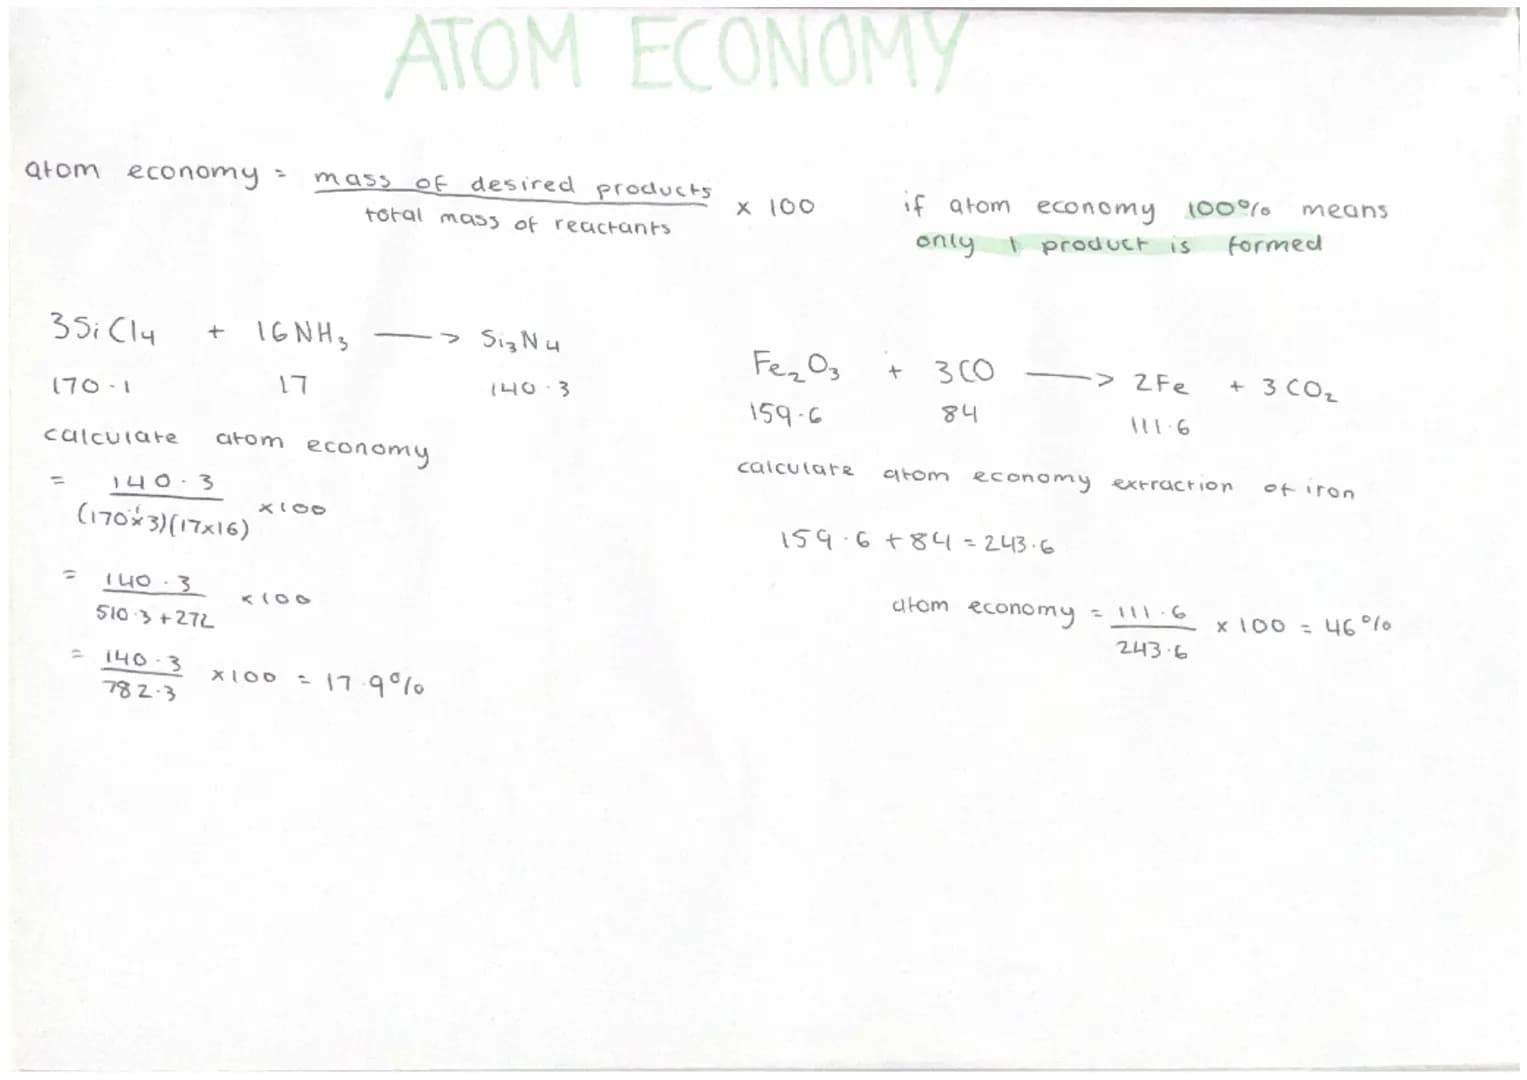 ATOM ECONOMY
atom economy = mass of desired products / total mass of reactants × 100
if atom economy 100% means
only 1 product is formed
3SiCl4 + 16NH3 → Si3N4
170.1 17 140.3
calculate atom economy
= 140.3 / (170.1×3)(17×16) ×100
= 140.3 / 510.3+272 ×100
= 140.3 / 782.3 ×100 = 17.9%
Fe2O3 + 3CO → 2Fe + 3CO2
159.6 84 111.6
calculate atom economy extraction of iron
159.6 + 84 = 243.6
atom economy = 111.6 / 243.6 × 100 = 46%